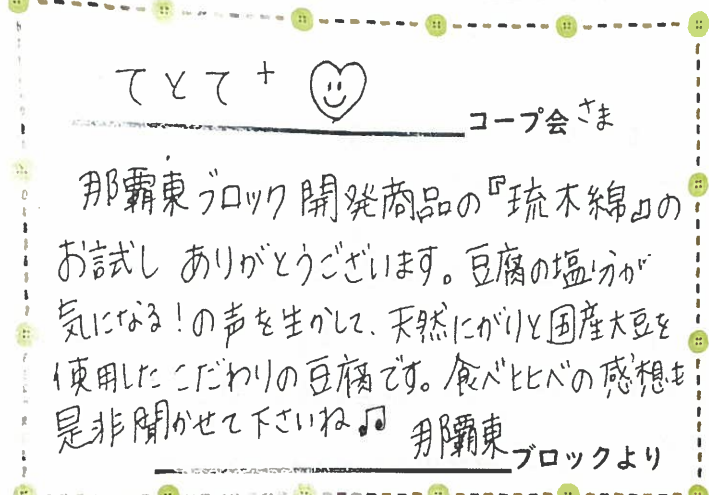 てとて+
コープ会さま
那覇東ブロック開発商品の『琉木綿』の
お試し ありがとうございます。豆腐の塩分が
気になる!の声を生かして、天然にがりと国産大豆を
使用したこだわりの豆腐です。食べ比べの感想も
是非聞かせて下さいね♫
那覇東ブロックより